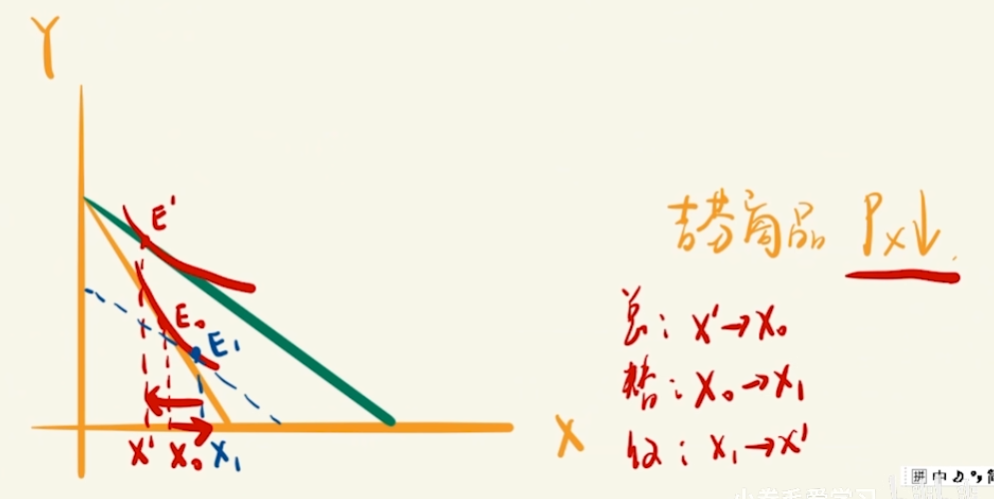 Y
E'
E₀
E₁
X' X₀ X₁
X
吉芬商品 Pₓ↓
总: X'→X₀
替: X₀→X₁
收: X₁→X'
拼 中